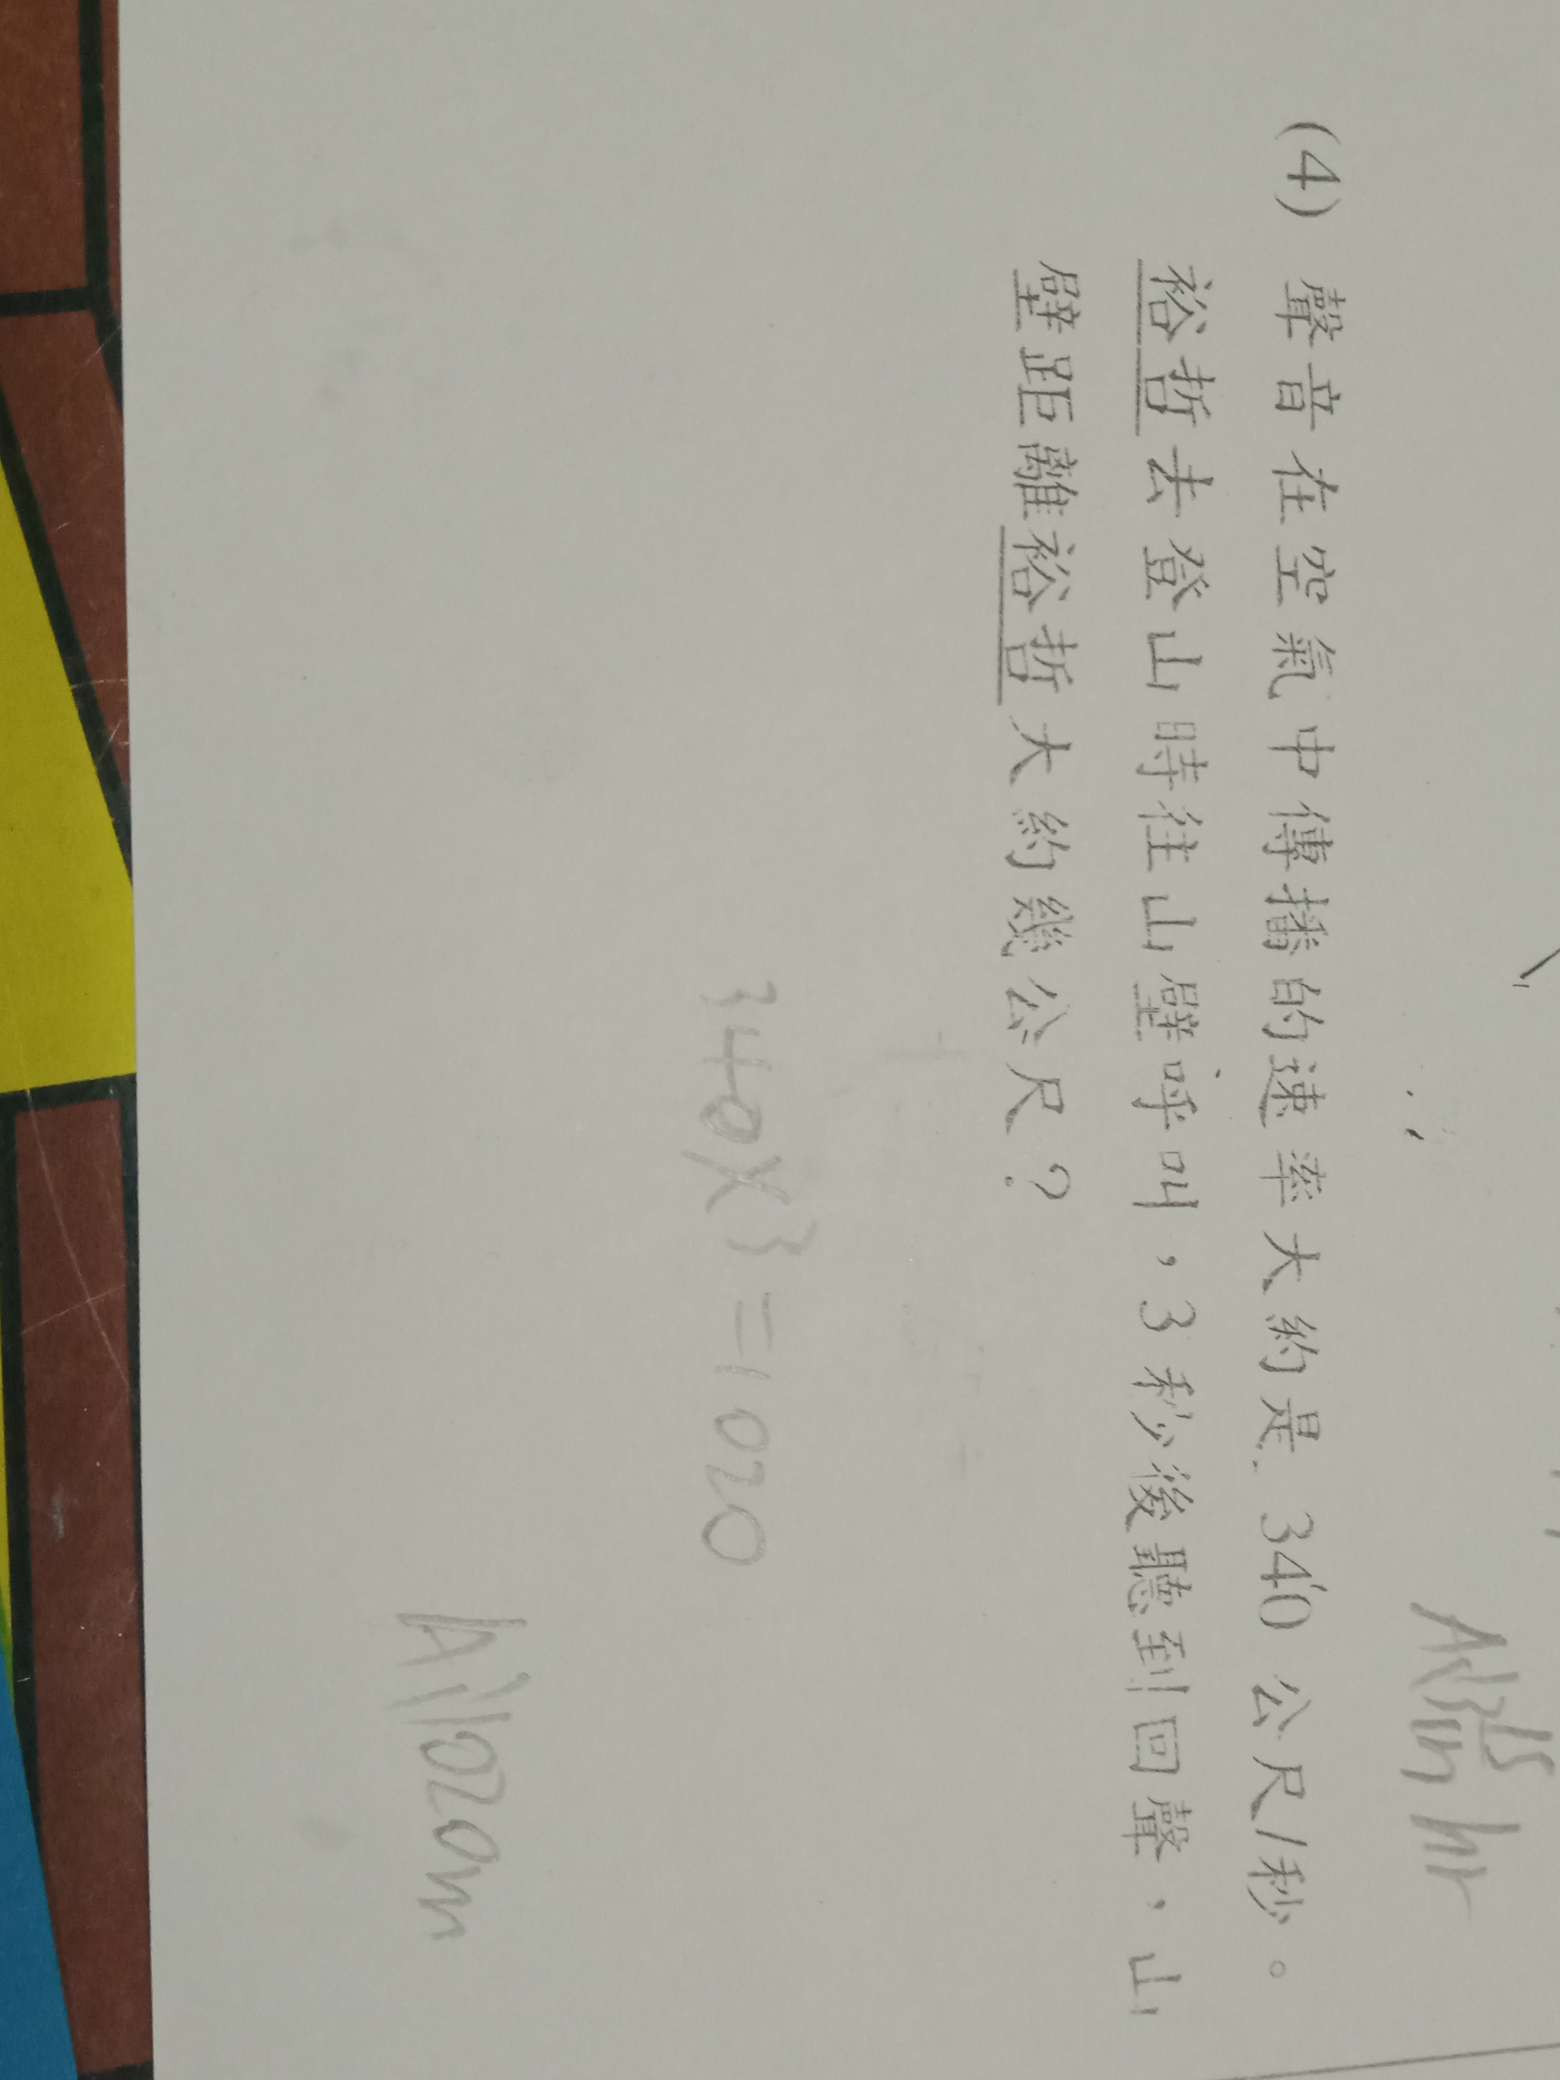 (4) 聲音在空氣中傳播的速率大約是 340 公尺/秒。
裕哲去登山時往山壁呼叫，3 秒後聽到回聲，山
壁距離裕哲大約幾公尺？
340×3=1020
A:1020m